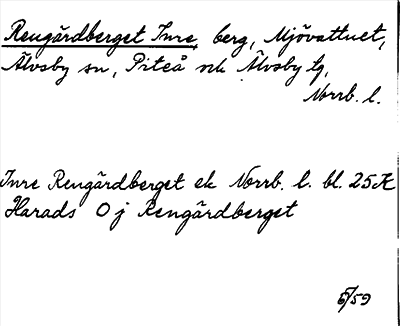 Rengårdberget Inre, berg, Mjövattnet,
Älvsby sn, Piteå o. Älvsby tg,
Norrb. l.
Inre Rengårdberget ek Norrb. l. bl. 25 K
Harads O j Rengårdberget
5/59